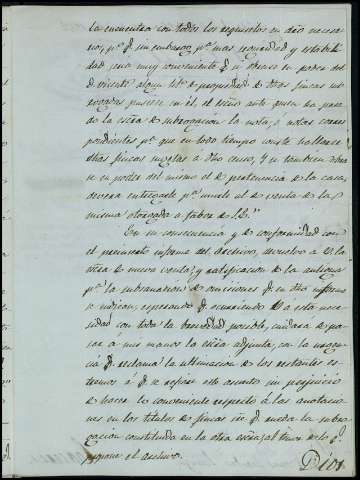 la encuentra con todos los requisitos en dro necesa-
rios, pª q. sin embargo pª mas seguridad y estabili-
dad sera muy conveniente q. si obrase en poder del
d. Vicente algun titº de propiedad de otras fincas su-
brogadas pusiese en él, el essno ante quien ha pasa-
do la essra de subrogacion la nota, ó notas corres-
pondientes pª que en todo tiempo conste hallarse
dhas fincas sugetas á dho censo, Y si tambien obra-
se en poder del mismo el de pertenencia de la casa,
devera entregarle pª unirle al de venta de la
misma otorgada á favor de
En su consecuencia y de conformidad con
el preinserto informe del Archivo, devuelvo á V. la
otra de nueva venta, y ratificacion de la antigua
pª la subsanacion de omisiones q. en dho informe
se indican, esperando q. ocurriendo V. á esta nece-
sidad con toda la brevedad posible, cuidara de pa-
sar á mis manos la essra adjunta, con la urgen-
cia q. reclama la ultimacion de los restantes es-
tremos á q. se refiere este asunto sin perjuicio
de hacer lo conveniente respecto á las anotacio-
nes en los titulos de fincas en q. queda la subro-
gacion constituida en la otra essra, al tenor de lo q.
propone el Archivo.
Dios